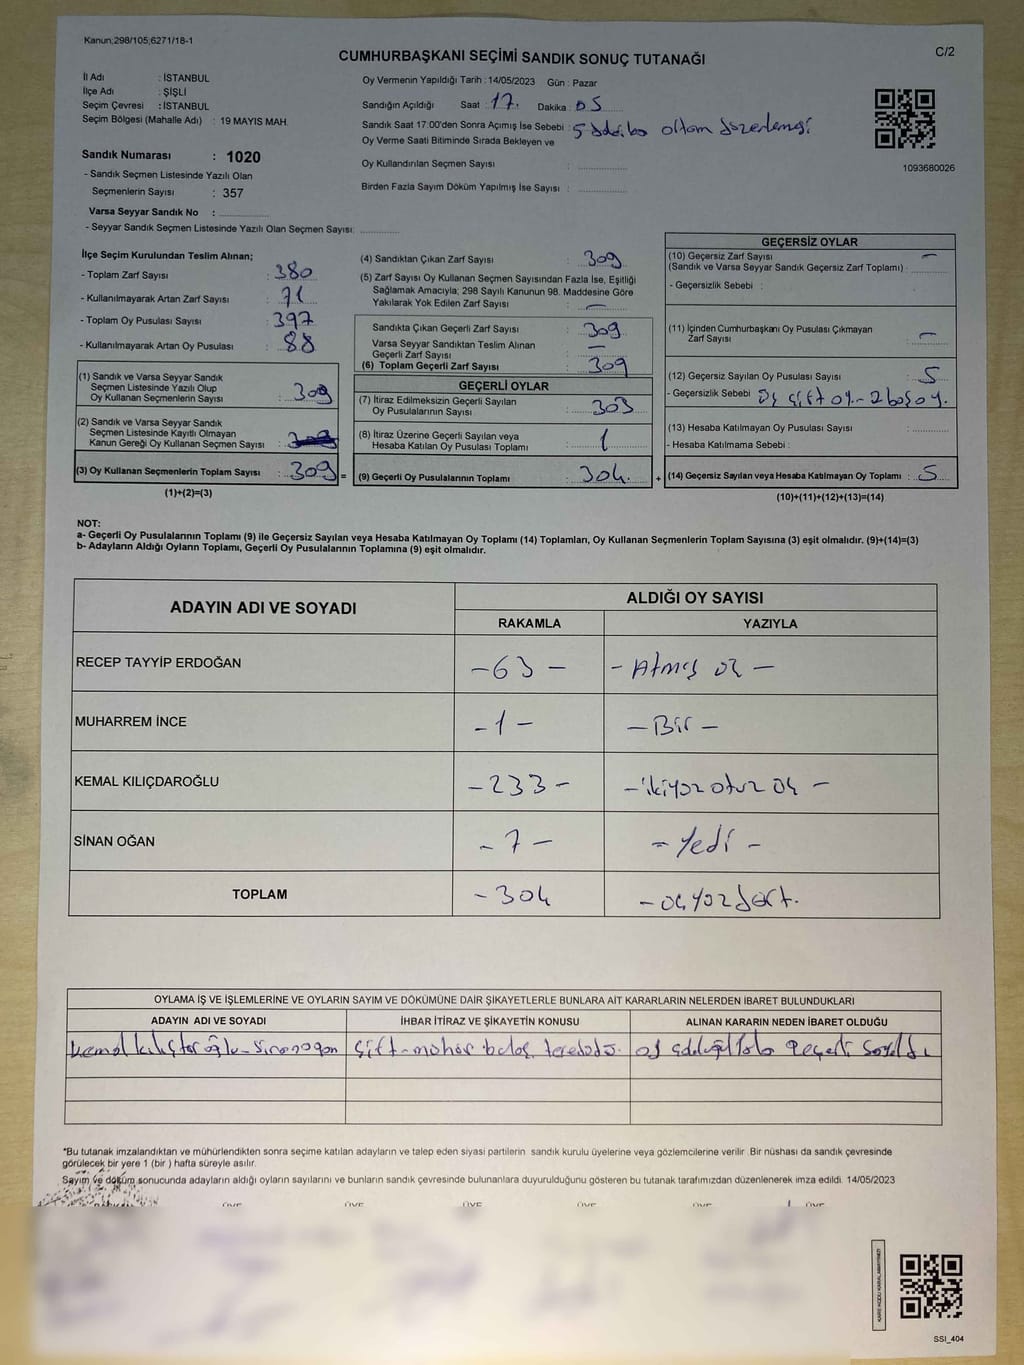 Kanun;298/105;6271/18-1
C/2
CUMHURBAŞKANI SEÇİMİ SANDIK SONUÇ TUTANAĞI
İl Adı : İSTANBUL
İlçe Adı : ŞİŞLİ
Seçim Çevresi : İSTANBUL
Seçim Bölgesi (Mahalle Adı) : 19 MAYIS MAH.
Sandık Numarası : 1020
- Sandık Seçmen Listesinde Yazılı Olan
Seçmenlerin Sayısı : 357
Varsa Seyyar Sandık No :
- Seyyar Sandık Seçmen Listesinde Yazılı Olan Seçmen Sayısı:
Oy Vermenin Yapıldığı Tarih : 14/05/2023 Gün : Pazar
Sandığın Açıldığı Saat : 17. Dakika : 05
Sandık Saat 17:00'den Sonra Açımış İse Sebebi : ortam düzenlemesi
Oy Verme Saati Bitiminde Sırada Bekleyen ve
Oy Kullandırılan Seçmen Sayısı :
Birden Fazla Sayım Döküm Yapılmış İse Sayısı :
1093680026
İlçe Seçim Kurulundan Teslim Alınan;
- Toplam Zarf Sayısı : 380
- Kullanılmayarak Artan Zarf Sayısı : 71
- Toplam Oy Pusulası Sayısı : 397
- Kullanılmayarak Artan Oy Pusulası : 88
(1) Sandık ve Varsa Seyyar Sandık
Seçmen Listesinde Yazılı Olup
Oy Kullanan Seçmenlerin Sayısı : 309
(2) Sandık ve Varsa Seyyar Sandık
Seçmen Listesinde Kayıtlı Olmayan
Kanun Gereği Oy Kullanan Seçmen Sayısı :
(3) Oy Kullanan Seçmenlerin Toplam Sayısı : 309 =
(1)+(2)=(3)
(4) Sandıktan Çıkan Zarf Sayısı : 309
(5) Zarf Sayısı Oy Kullanan Seçmen Sayısından Fazla İse, Eşitliği
Sağlamak Amacıyla; 298 Sayılı Kanunun 98. Maddesine Göre
Yakılarak Yok Edilen Zarf Sayısı : —
Sandıkta Çıkan Geçerli Zarf Sayısı : 309
Varsa Seyyar Sandıktan Teslim Alınan
Geçerli Zarf Sayısı : —
(6) Toplam Geçerli Zarf Sayısı : 309
GEÇERLİ OYLAR
(7) İtiraz Edilmeksizin Geçerli Sayılan
Oy Pusulalarının Sayısı : 303
(8) İtiraz Üzerine Geçerli Sayılan veya
Hesaba Katılan Oy Pusulası Toplamı : 1
(9) Geçerli Oy Pusulalarının Toplamı : 304. +
GEÇERSİZ OYLAR
(10) Geçersiz Zarf Sayısı
(Sandık ve Varsa Seyyar Sandık Geçersiz Zarf Toplamı) : —
- Geçersizlik Sebebi :
(11) İçinden Cumhurbaşkanı Oy Pusulası Çıkmayan
Zarf Sayısı : —
(12) Geçersiz Sayılan Oy Pusulası Sayısı : 5
- Geçersizlik Sebebi : Üç çift oy - 2 boş oy.
(13) Hesaba Katılmayan Oy Pusulası Sayısı :
- Hesaba Katılmama Sebebi :
(14) Geçersiz Sayılan veya Hesaba Katılmayan Oy Toplamı : 5
(10)+(11)+(12)+(13)=(14)
NOT:
a- Geçerli Oy Pusulalarının Toplamı (9) ile Geçersiz Sayılan veya Hesaba Katılmayan Oy Toplamı (14) Toplamları, Oy Kullanan Seçmenlerin Toplam Sayısına (3) eşit olmalıdır. (9)+(14)=(3)
b- Adayların Aldığı Oyların Toplamı, Geçerli Oy Pusulalarının Toplamına (9) eşit olmalıdır.
ADAYIN ADI VE SOYADI
ALDIĞI OY SAYISI
RAKAMLA YAZIYLA
RECEP TAYYİP ERDOĞAN - 63 - - Atmış üç -
MUHARREM İNCE - 1 - - Bir -
KEMAL KILIÇDAROĞLU - 233 - - ikiyüz otuz üç -
SİNAN OĞAN - 7 - - Yedi -
TOPLAM - 304 - üçyüz dört.
OYLAMA İŞ VE İŞLEMLERİNE VE OYLARIN SAYIM VE DÖKÜMÜNE DAİR ŞİKAYETLERLE BUNLARA AİT KARARLARIN NELERDEN İBARET BULUNDUKLARI
ADAYIN ADI VE SOYADI İHBAR İTİRAZ VE ŞİKAYETİN KONUSU ALINAN KARARIN NEDEN İBARET OLDUĞU
Kemal Kılıçtaroğlu - Sinan ogan çift - mühür geçerli sayıldı
*Bu tutanak imzalandıktan ve mühürlendikten sonra seçime katılan adayların ve talep eden siyasi partilerin sandık kurulu üyelerine veya gözlemcilerine verilir. Bir nüshası da sandık çevresinde
görülecek bir yere 1 (bir ) hafta süreyle asılır.
Sayım ve döküm sonucunda adayların aldığı oyların sayılarını ve bunların sandık çevresinde bulunanlara duyurulduğunu gösteren bu tutanak tarafımızdan düzenlenerek imza edildi. 14/05/2023
SSI_404